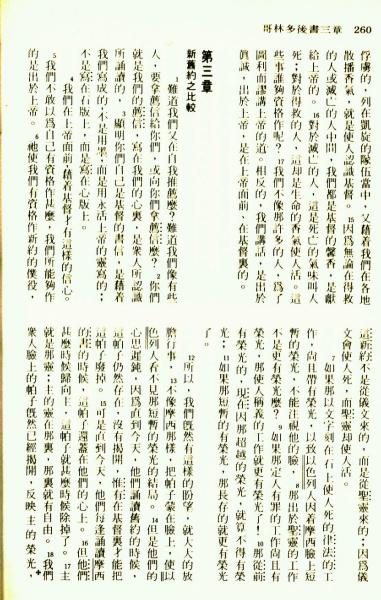 260　哥林多後書三章
俘虜的，列在凱旋的隊伍當中，又藉着我們在各地
散播香氣，就是使人認識基督。15因爲無論在得救
的人或滅亡的人中間，我們都是基督的馨香，是獻
給上帝的。16對於滅亡的人，這是死亡的氣味叫人
死；對於得救的人，這却是生命的香氣使人活。這
些事誰夠資格作呢？17我們不像那許多的人，爲了
圖利而謬講上帝的道。相反的，我們講話，是出於
眞誠，出於上帝，是在上帝面前、在基督裏的。
第三章
新舊約之比較
1難道我們又在自我推薦麼？難道我們像有些
人，要拿薦信給你們，或向你們拿薦信麼？2你們
就是我們的薦信，寫在我們的心裏，是衆人所認識
所誦讀的，3顯明你們自己是基督的書信，是藉着
我們寫成的；不是用墨，而是用永活上帝的靈寫的；
不是寫在石版上，而是寫在心版上。
4我們在上帝面前，藉着基督才有這樣的信心。
5我們不敢以爲自己有資格作甚麼，我們所能夠作
的是出於上帝。6祂使我們有資格作新約的僕役，
這新約不是從儀文來的，而是從聖靈來的；因爲儀
文會使人死，而聖靈却使人活。
7如果那以文字刻在石上使人死的律法的工
作，尚且帶有榮光，以致以色列人因着摩西臉上短
暫的榮光，不能注視他的臉，8那出於聖靈的工作
不是更有榮光麼？9如果那定人有罪的工作尚且有
榮光，那使人稱義的工作就更有榮光了！10那從前
有榮光的，現在因那超越的榮光，就算不得有榮
光；11如果那短暫的有榮光，那長存的就更有榮光
了。
12所以，我們旣然有這樣的盼望，就大大的放
膽行事，13不像摩西那樣，把帕子蒙在臉上，使以
色列人看不見那短暫的榮光的結局。14但是他們的
心思遲鈍，因爲直到今天，他們誦讀舊約的時候，
這帕子仍然存在，沒有揭開，惟有在基督裏才能把
這帕子廢掉。15可是直到今天，他們每逢誦讀摩西
的書的時候，這帕子還蓋在他們的心上。16但他們
甚麼時候歸向主，這帕子就甚麼時候除掉了。17主
就是那靈；主的靈在那裏，那裏就有自由。18我們
衆人臉上的帕子旣然已經揭開，反映主的榮光，